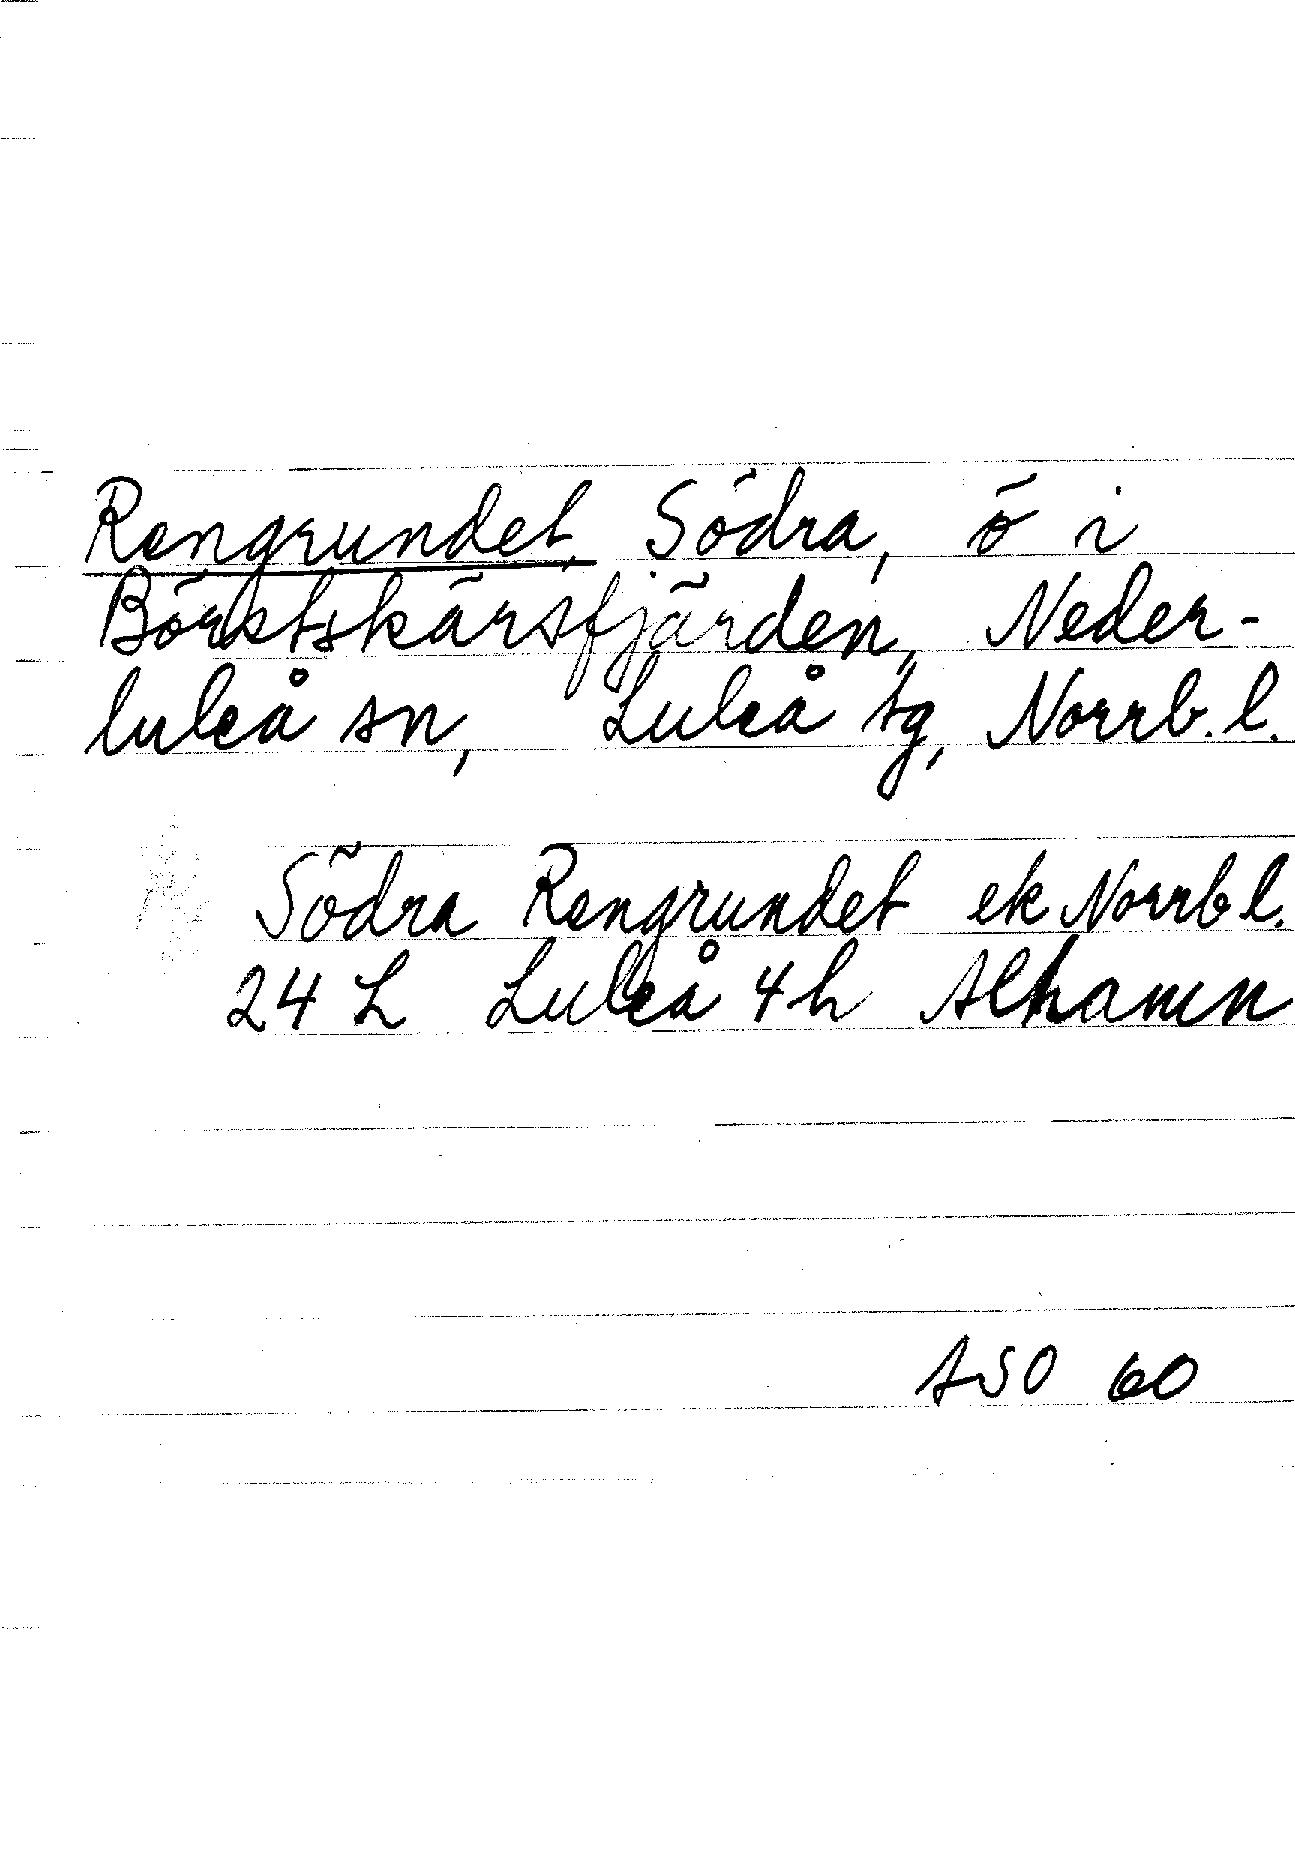 Rengrundet, Södra, ö i
Börstskärsfjärden, Neder-
luleå sn, Luleå tg, Norrb. l.
Södra Rengrundet ek Norrb l.
24 L Luleå 4h Alhamn
ASO 60